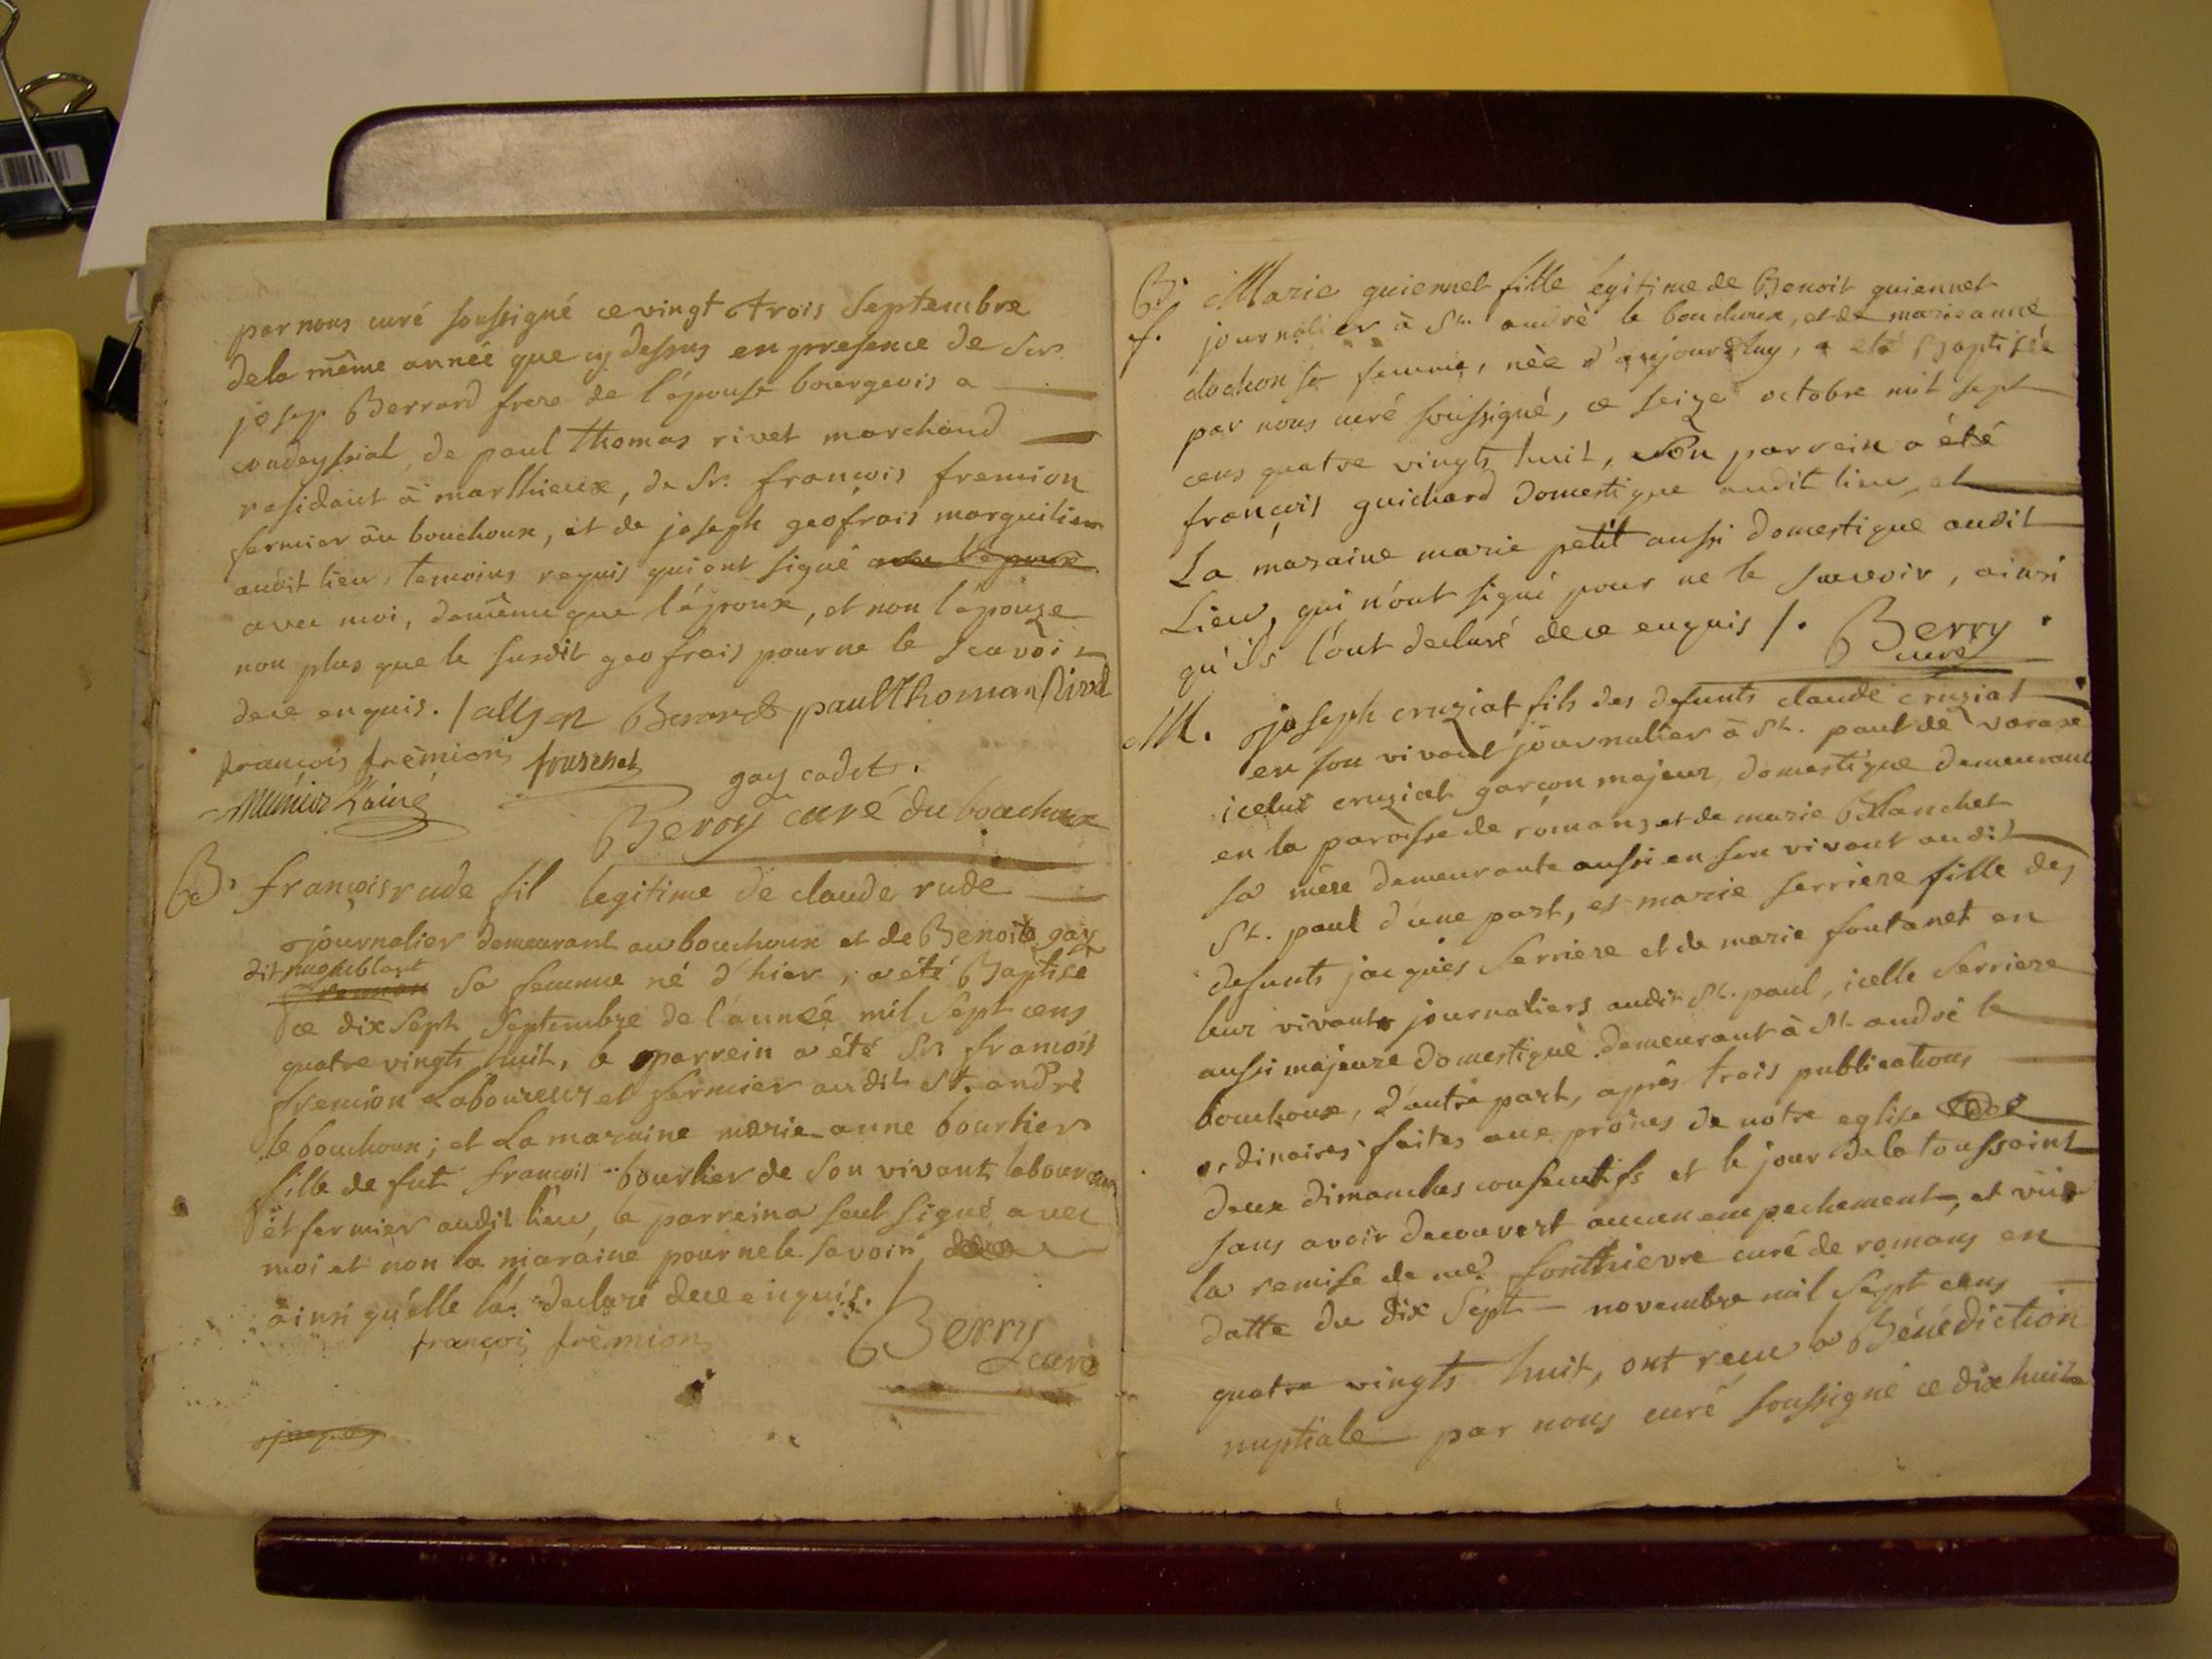 par nous curé soussigné ce vingt trois Septembre
de la même année que cy dessus en presence de Sr.
josep Berrard frere de l'épouse bourgeois a
condeyssiat, de paul thomas rivet marchand
residant à marlhieux, de Sr. françois fremion
fermier au bouchoux, et de joseph geofrais marguilier
audit lieu, temoins requis qui ont signé avec l'epoux
avec moi, de même que l'époux, et non l'épouze
non plus que le susdit geofrais pour ne le scavoir
de ce enquis. / Berrard paul Thomas Rivet
françois fremion
Munier L'ainé gay cadet.
Berry curé du bouchoux
B. françois rude fil legitime de claude rude
journalier demeurant au bouchoux et de Benoite gay
dit
sa femme né d'hier, a été Baptisé
ce dix Sept Septembre de l'année mil Sept cens
quatre vingts huit, le parrein a été Sr. francois
fremion Laboureur et fermier audit St. andré
le bouchoux; et La maraine marie anne bourlier
fille de fut francois bourlier de Son vivant laboureur
et fermier audit lieu, le parrein a seul signé avec
moi et non la maraine pour ne le Savoir,
ainsi qu'elle l'a declaré de ce enquis.
françois fremion Berry
curé
B. Marie guiennet fille legitime de Benoit guiennet
f. journalier à St. andré le bouchoux, et de marie anne
dochon sa femme, née d'aujourd'huy, a eté Baptisée
par nous curé soussigné, ce seize octobre mil sept
cens quatre vingts huit, Son parrein a été
françois guichard domestique audit lieu, et
La maraine marie petit aussi domestique audit
Lieu, qui n'ont signé pour ne le Scavoir, ainsi
qu'ils l'ont declaré de ce enquis /. Berry
curé
M. joseph cruziat fils des defunts claude cruziat
en son vivant journalier à St. paul de varaxe
icelui cruziat garçon majeur, domestique demeurant
en la paroisse de romans et de marie Blanchet
sa mere demeurante aussi en son vivant audit
St. paul d'une part, et marie serriere fille des
defunts jacques Serriere et de marie fontanet en
leur vivants journaliers audit St. paul, icelle Serriere
aussi majeure domestique demeurant à St. andré le
bouchoux, d'autre part, après trois publications
ordinaires faites aux prônes de notre eglise
deux dimanches consecutifs et le jour de la toussaint
sans avoir decouvert aucun empechement, et vue
la remise de me. fonthievre curé de romans en
datte du dix Sept novembre mil Sept cens
quatre vingts huit, ont recu la Bénédiction
nuptiale par nous curé soussigné ce dix huit